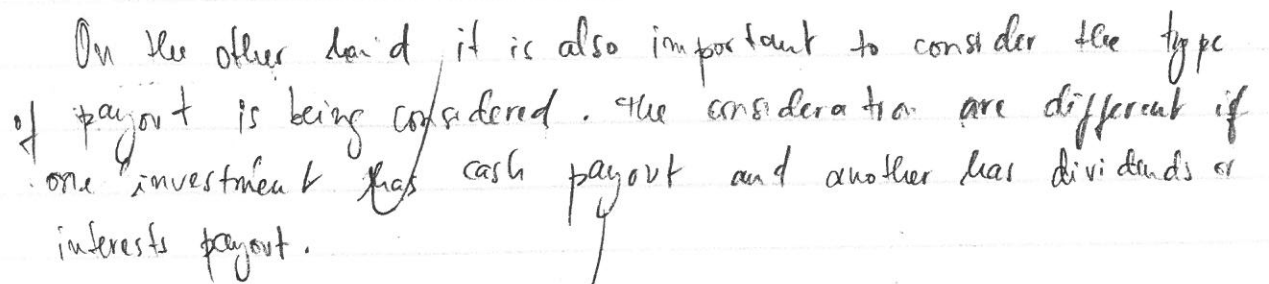 On the other hand it is also important to consider the type
of payout is being considered. The consideration are different if
one investment has cash payout and another has dividends or
interests payout.